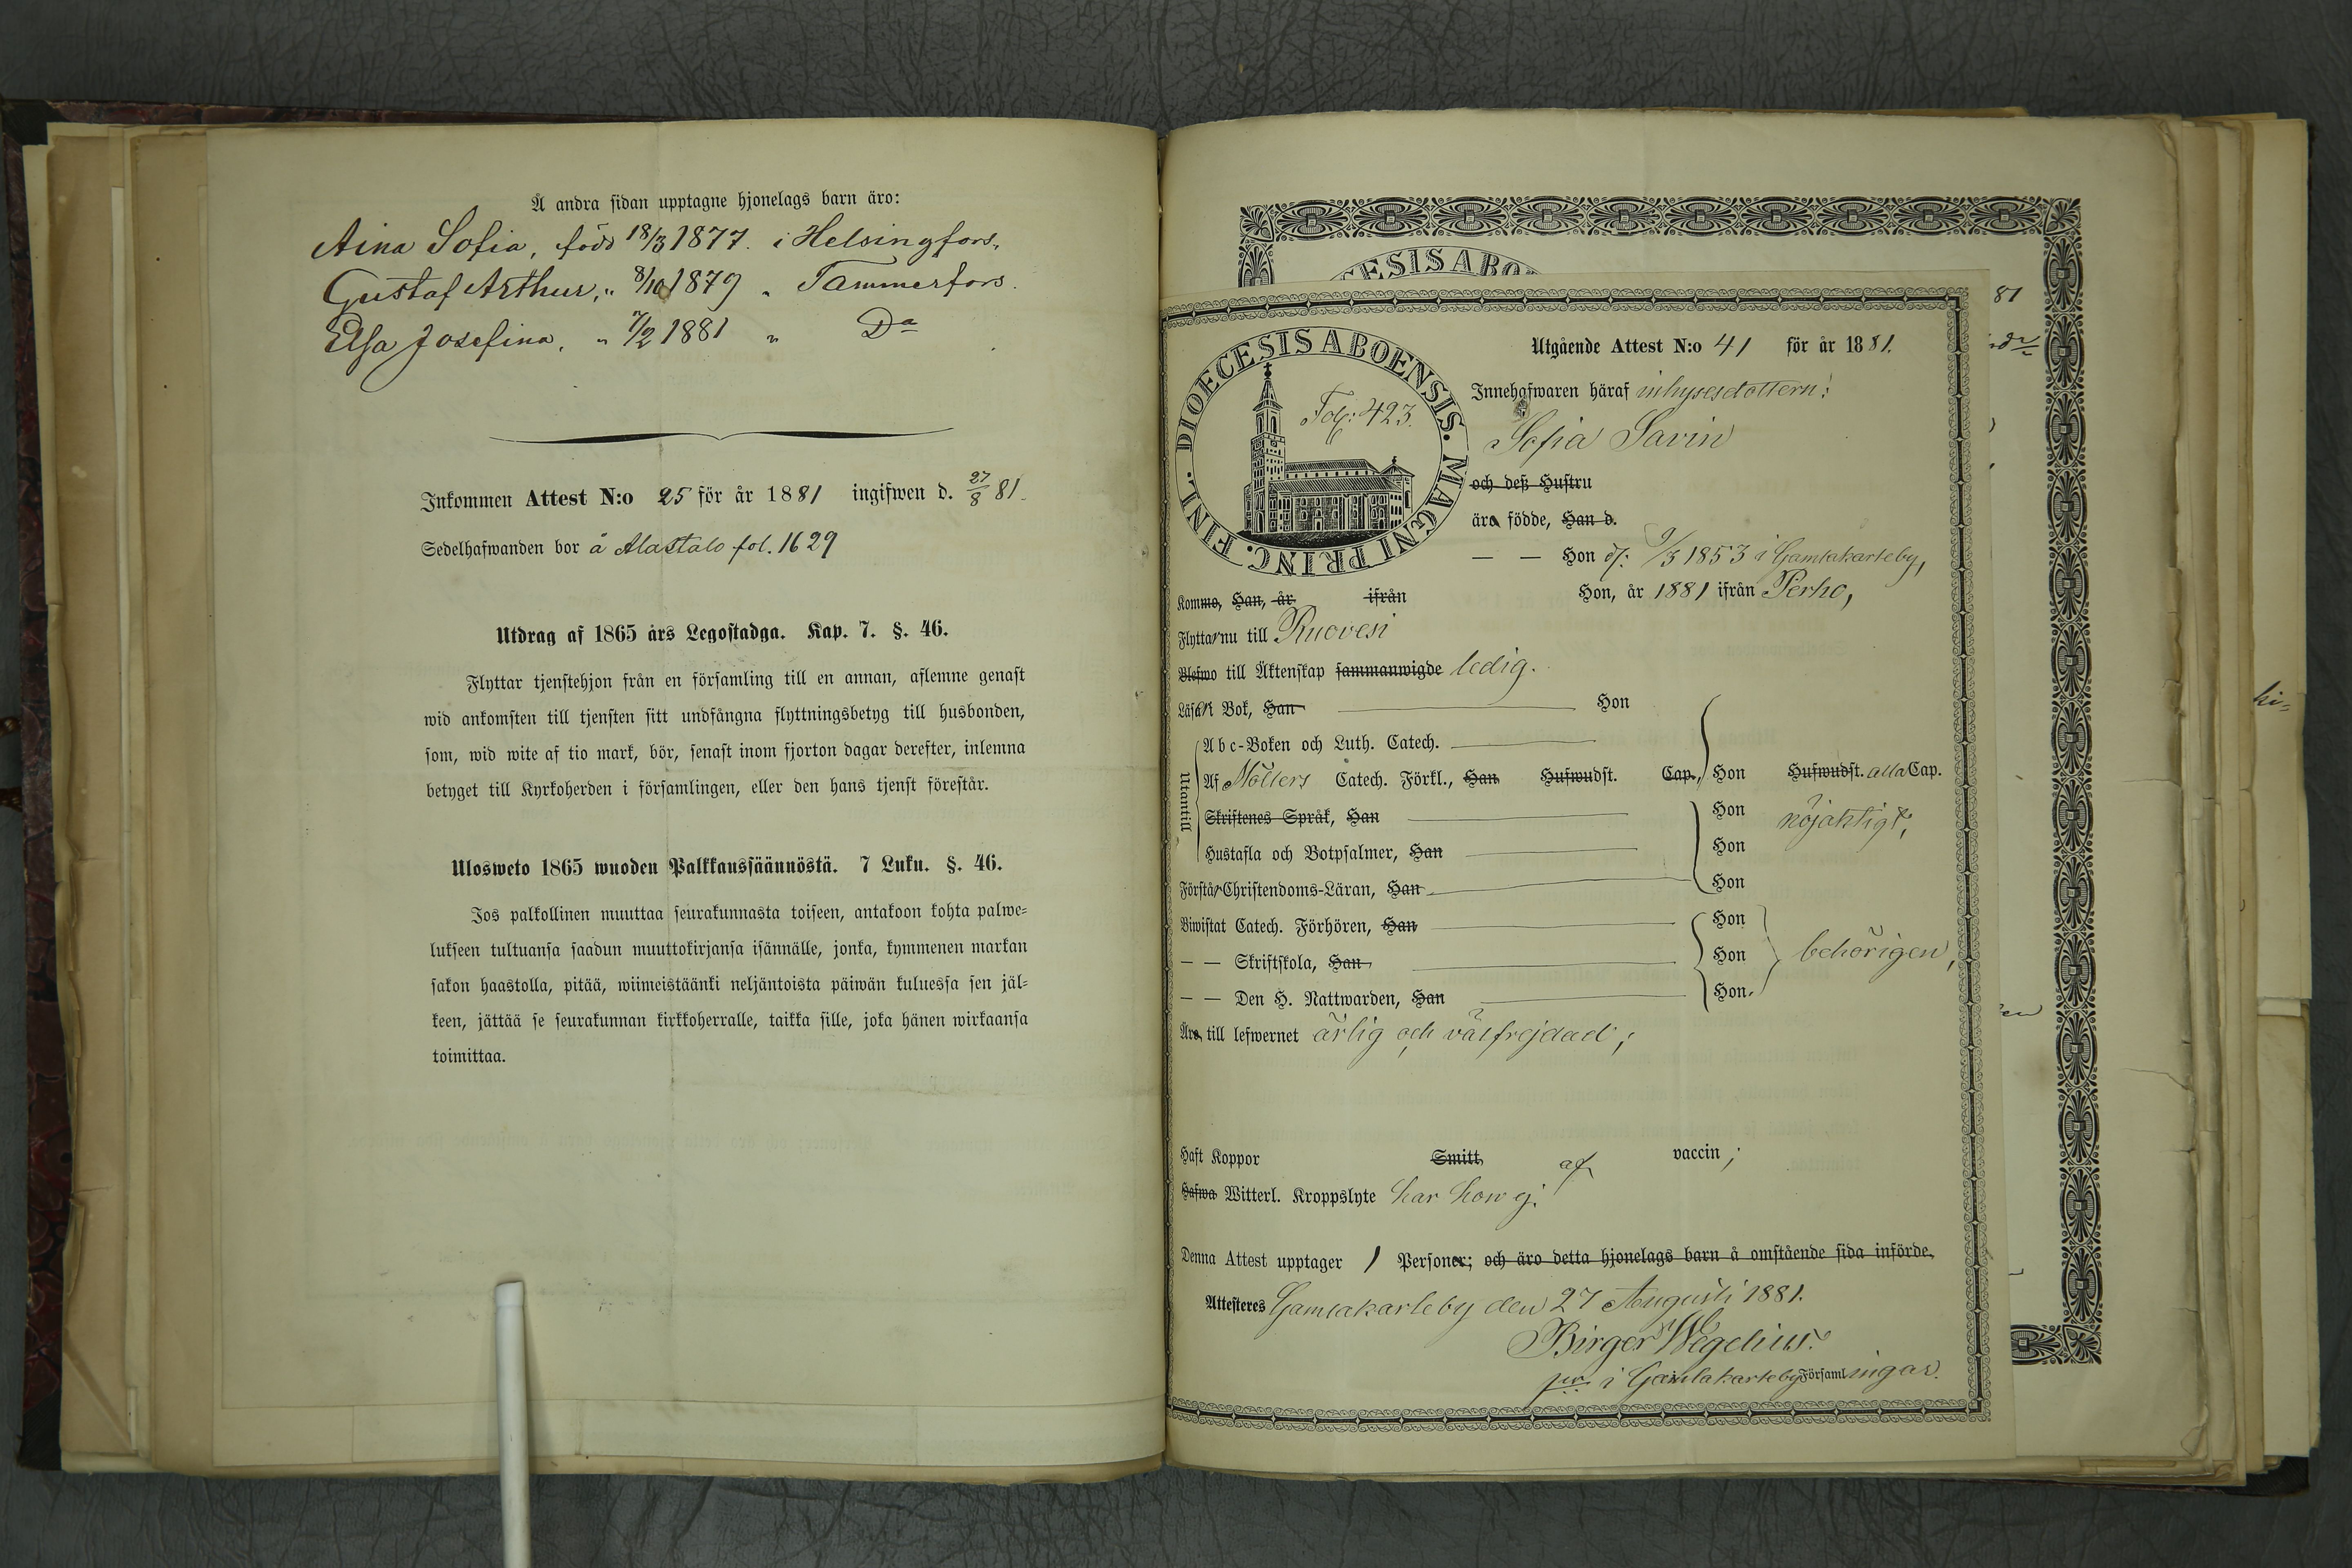 Å andra sidan upptagne hjonelags barn äro:
Aina Sofia, född 18/3 1877. i Helsingfors.
Gustaf Arthur, " 8/10 1879 " Tammerfors.
Elsa Josefina, " 7/2 1881 " Da
Inkommen Attest N:o 25 för år 1881 ingifwen d. 27/8 81.
Sedelhafwanden bor å Alastalo fol. 1629
Utdrag af 1865 års Legostadga. Kap. 7. §. 46.
Flyttar tjenstehjon från en församling till en annan, aflemne genast
wid ankomsten till tjensten sitt undfångna flyttningsbetyg till husbonden,
som, wid wite af tio mark, bör, senast inom fjorton dagar derefter, inlemna
betyget till Kyrkoherden i församlingen, eller den hans tjenst förestår.
Ulosweto 1865 wuoden Palkkaussäännöstä. 7 Luku. §. 46.
Jos palkollinen muuttaa seurakunnasta toiseen, antakoon kohta palwe-
lukseen tultuansa saadun muuttokirjansa isännälle, jonka, kymmenen markan
sakon haastolla, pitää, wiimeistäänki neljäntoista päiwän kuluessa sen jäl-
keen, jättää se seurakunnan kirkkoherralle, taikka sille, joka hänen wirkaansa
toimittaa.
DIOECESIS ABOENSIS. MAGNI PRINC. FINL.
Fol: 423.
Utgående Attest N:o 41 för år 1881.
Innehafwaren häraf inhysesdottern:
Sofia Savin
och deß Hustru
ära födde, Han d.
— — Hon d: 9/3 1853 i Gamlakarleby,
Kommo, Han, år ifrån Hon, år 1881 ifrån Perho,
Flyttar nu till Ruovesi
Blefwo till Äktenskap sammanwigde ledig.
Läsa i Bok, Han Hon
Utantill
Abc-Boken och Luth. Catech.
Af Möllers Catech. Förkl., Han Hufwudst. Cap., Hon Hufwudst. alla Cap.
Skriftenes Språk, Han Hon nöjaktigt;
Hustafla och Botpsalmer, Han Hon
Förstår Christendoms-Läran, Han Hon
Biwistat Catech. Förhören, Han Hon
— — Skriftskola, Han Hon behörigen,
— — Den H. Nattwarden, Han Hon
Äro till lefwernet ärlig och välfrejdad;
Haft Koppor Smitt af vaccin;
Hafwa Witterl. Kroppslyte har hon ej.
Denna Attest upptager 1 Personer; och äro detta hjonelags barn å omstående sida införde.
Attesteres Gamlakarleby den 27 Augusti 1881.
Birger Wegelius.
i Gamlakarleby Församlingar.
ESIS ABO
81